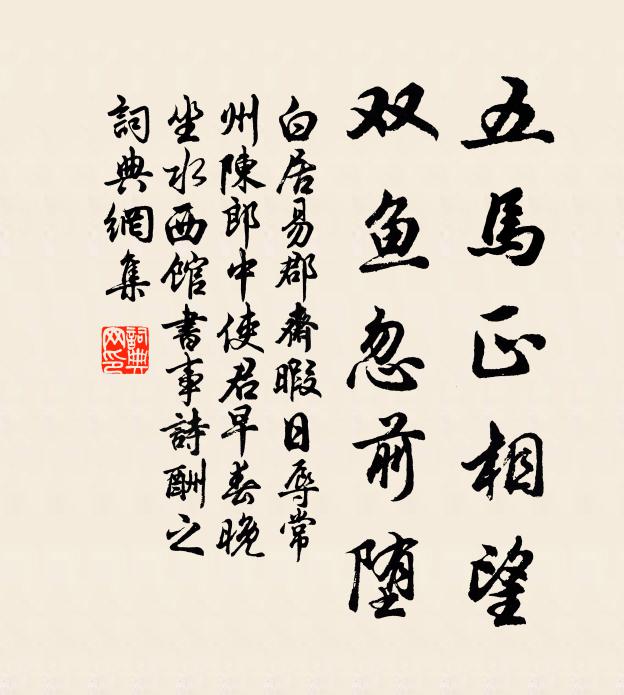 五馬正相望
双鱼忽前堕
白居易郡齋暇日辱常
州陳郎中使君早春晚
坐水西館書事詩酬之
詞典網集
詞典
网印